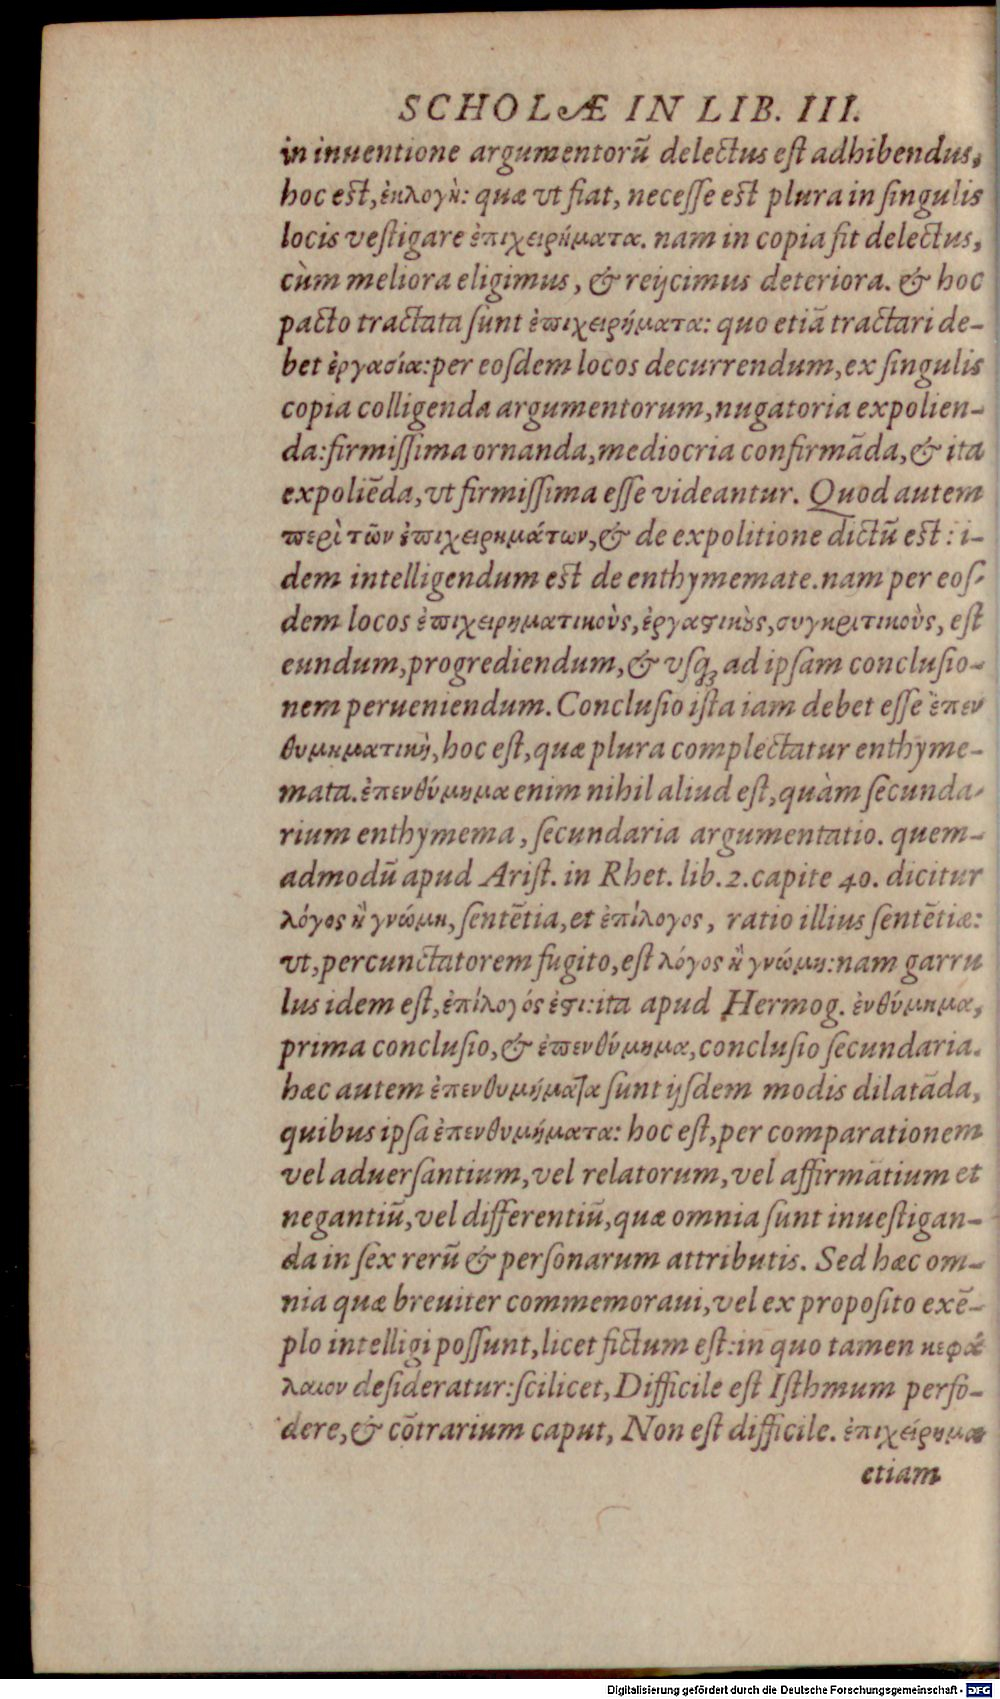 SCHOLÆ IN LIB. III.
in inuentione argumentorũ delectus eſt adhibendus,
hoc est, ἐκλογὴ: quæ vt fiat, necesse est plura in ſingulis
locis veſtigare ἐπιχειρήματα. nam in copia fit delectus,
cùm meliora eligimus, & reijcimus deteriora. & hoc
pacto tractata ſunt ἐπιχειρήματα: quo etiã tractari de-
bet ἐργασία: per eoſdem locos decurrendum, ex ſingulis
copia colligenda argumentorum, nugatoria expolien-
da: firmiſſima ornanda, mediocria confirmãda, & ita
expoliẽda, vt firmiſſima eſſe videantur. Quod autem
περὶ τῶν ἐπιχειρημάτων, & de expolitione dictũ est: i-
dem intelligendum est de enthymemate. nam per eoſ-
dem locos ἐπιχειρηματικοὺς, ἐργαϛικοὺς, συγκριτικοὺς, eſt
eundum, progrediendum, & vſq́ꝫ ad ipſam concluſio-
nem perueniendum. Concluſio iſta iam debet eſſe ἐπεν
θυμηματικὴ, hoc eſt, quæ plura complectatur enthyme-
mata. ἐπενθύμημα enim nihil aliud eſt, quàm ſecunda-
rium enthymema, ſecundaria argumentatio. quem-
admodũ apud Ariſt. in Rhet. lib. 2. capite 40. dicitur
λόγος ἢ γνώμη, ſentẽtia, et ἐπίλογος, ratio illius ſentẽtiæ:
vt, percunctatorem fugito, eſt λόγος ἢ γνώμη: nam garru
lus idem eſt, ἐπίλογός ἐϛι: ita apud Hermog. ἐνθύμημα,
prima concluſio, & ἐπενθύμημα, concluſio ſecundaria.
hæc autem ἐπενθυμήματα ſunt ijſdem modis dilatãda,
quibus ipſa ἐπενθυμήματα: hoc eſt, per comparationem
vel aduerſantium, vel relatorum, vel affirmãtium et
negantiũ, vel differentiũ, quæ omnia ſunt inueſtigan-
da in ſex rerũ & perſonarum attributis. Sed hæc om-
nia quæ breuiter commemoraui, vel ex propoſito exẽ-
plo intelligi poſſunt, licet fictum eſt: in quo tamen κεφά
λαιον deſideratur: ſcilicet, Difficile eſt Iſthmum perfo-
dere, & cõtrarium caput, Non eſt difficile. ἐπιχείρημα
etiam
Digitalisierung gefördert durch die Deutsche Forschungsgemeinschaft - DFG